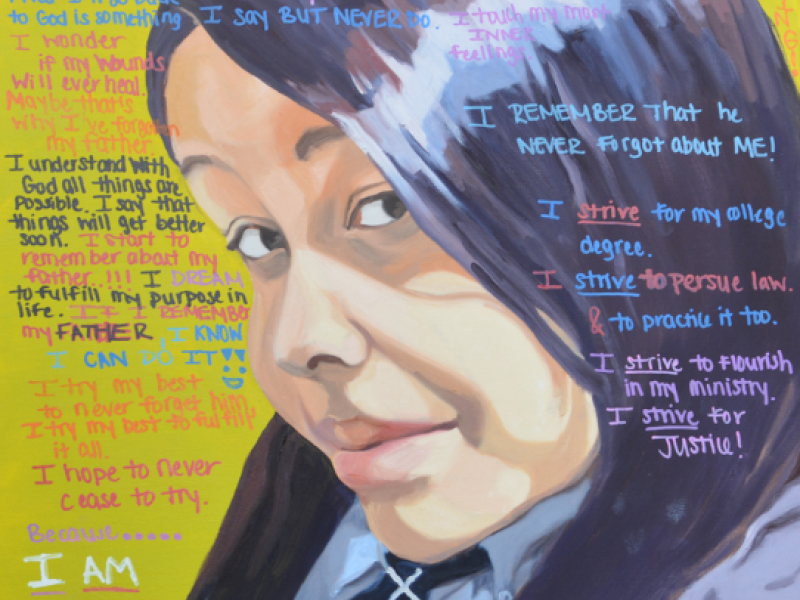 to God is something
I SAY BUT NEVER DO.
I touch my most
INNER
feelings
I wonder
if my wounds
will ever heal.
Maybe that's
why I've forgotten
my father.
I understand with
God all things are
possible. I say that
things will get better
soon. I start to
remember about my
father !!! I DREAM
to fulfill my purpose in
life. If I REMEMBER
my FATHER, I KNOW
I CAN DO IT!!
I try my best
to never forget him.
I try my best to fulfill
it all.
I hope to never
cease to try.
Because.....
I AM
I REMEMBER That he
NEVER Forgot about ME!
I strive for my college
degree.
I strive to persue law.
& to practice it too.
I strive to flourish
in my ministry.
I strive for
Justice!
X